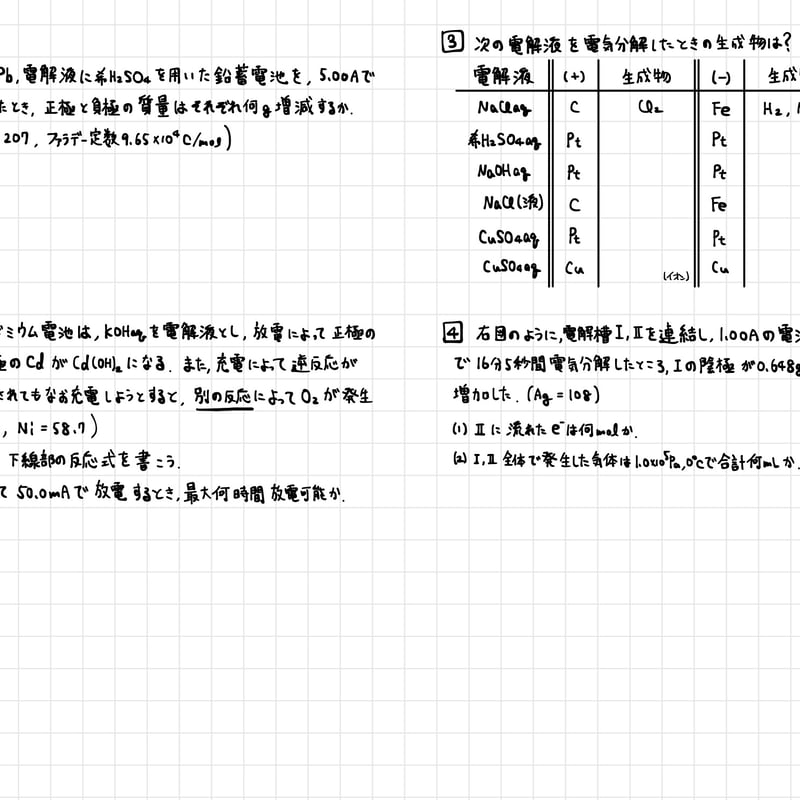 Pb, 電解液に希H₂SO₄を用いた鉛蓄電池を, 5.00Aで
たとき, 正極と負極の質量はそれぞれ何g増減するか.
207, ファラデー定数9.65×10⁴C/mol)
ミウム電池は, KOHaqを電解液とし, 放電によって正極の
極のCdがCd(OH)₂になる. また, 充電によって逆反応が
されてもなお充電しようとすると, 別の反応によってO₂が発生
, Ni=58.7)
下線部の反応式を書こう.
て50.0mAで放電するとき, 最大何時間放電可能か.
3 次の電解液を電気分解したときの生成物は?
電解液 (+) 生成物 (-) 生成
NaClaq C Cl₂ Fe H₂,
希H₂SO₄aq Pt Pt
NaOHaq Pt Pt
NaCl(液) C Fe
CuSO₄aq Pt Pt
CuSO₄aq Cu (イオン) Cu
4 右図のように, 電解槽I, IIを連結し, 1.00Aの電流
で16分5秒間電気分解したところ, Iの陰極が0.648g
増加した. (Ag=108)
(1) IIに流れたe⁻は何molか.
(2) I, II全体で発生した気体は1.0×10⁵Pa, 0℃で合計何mLか.